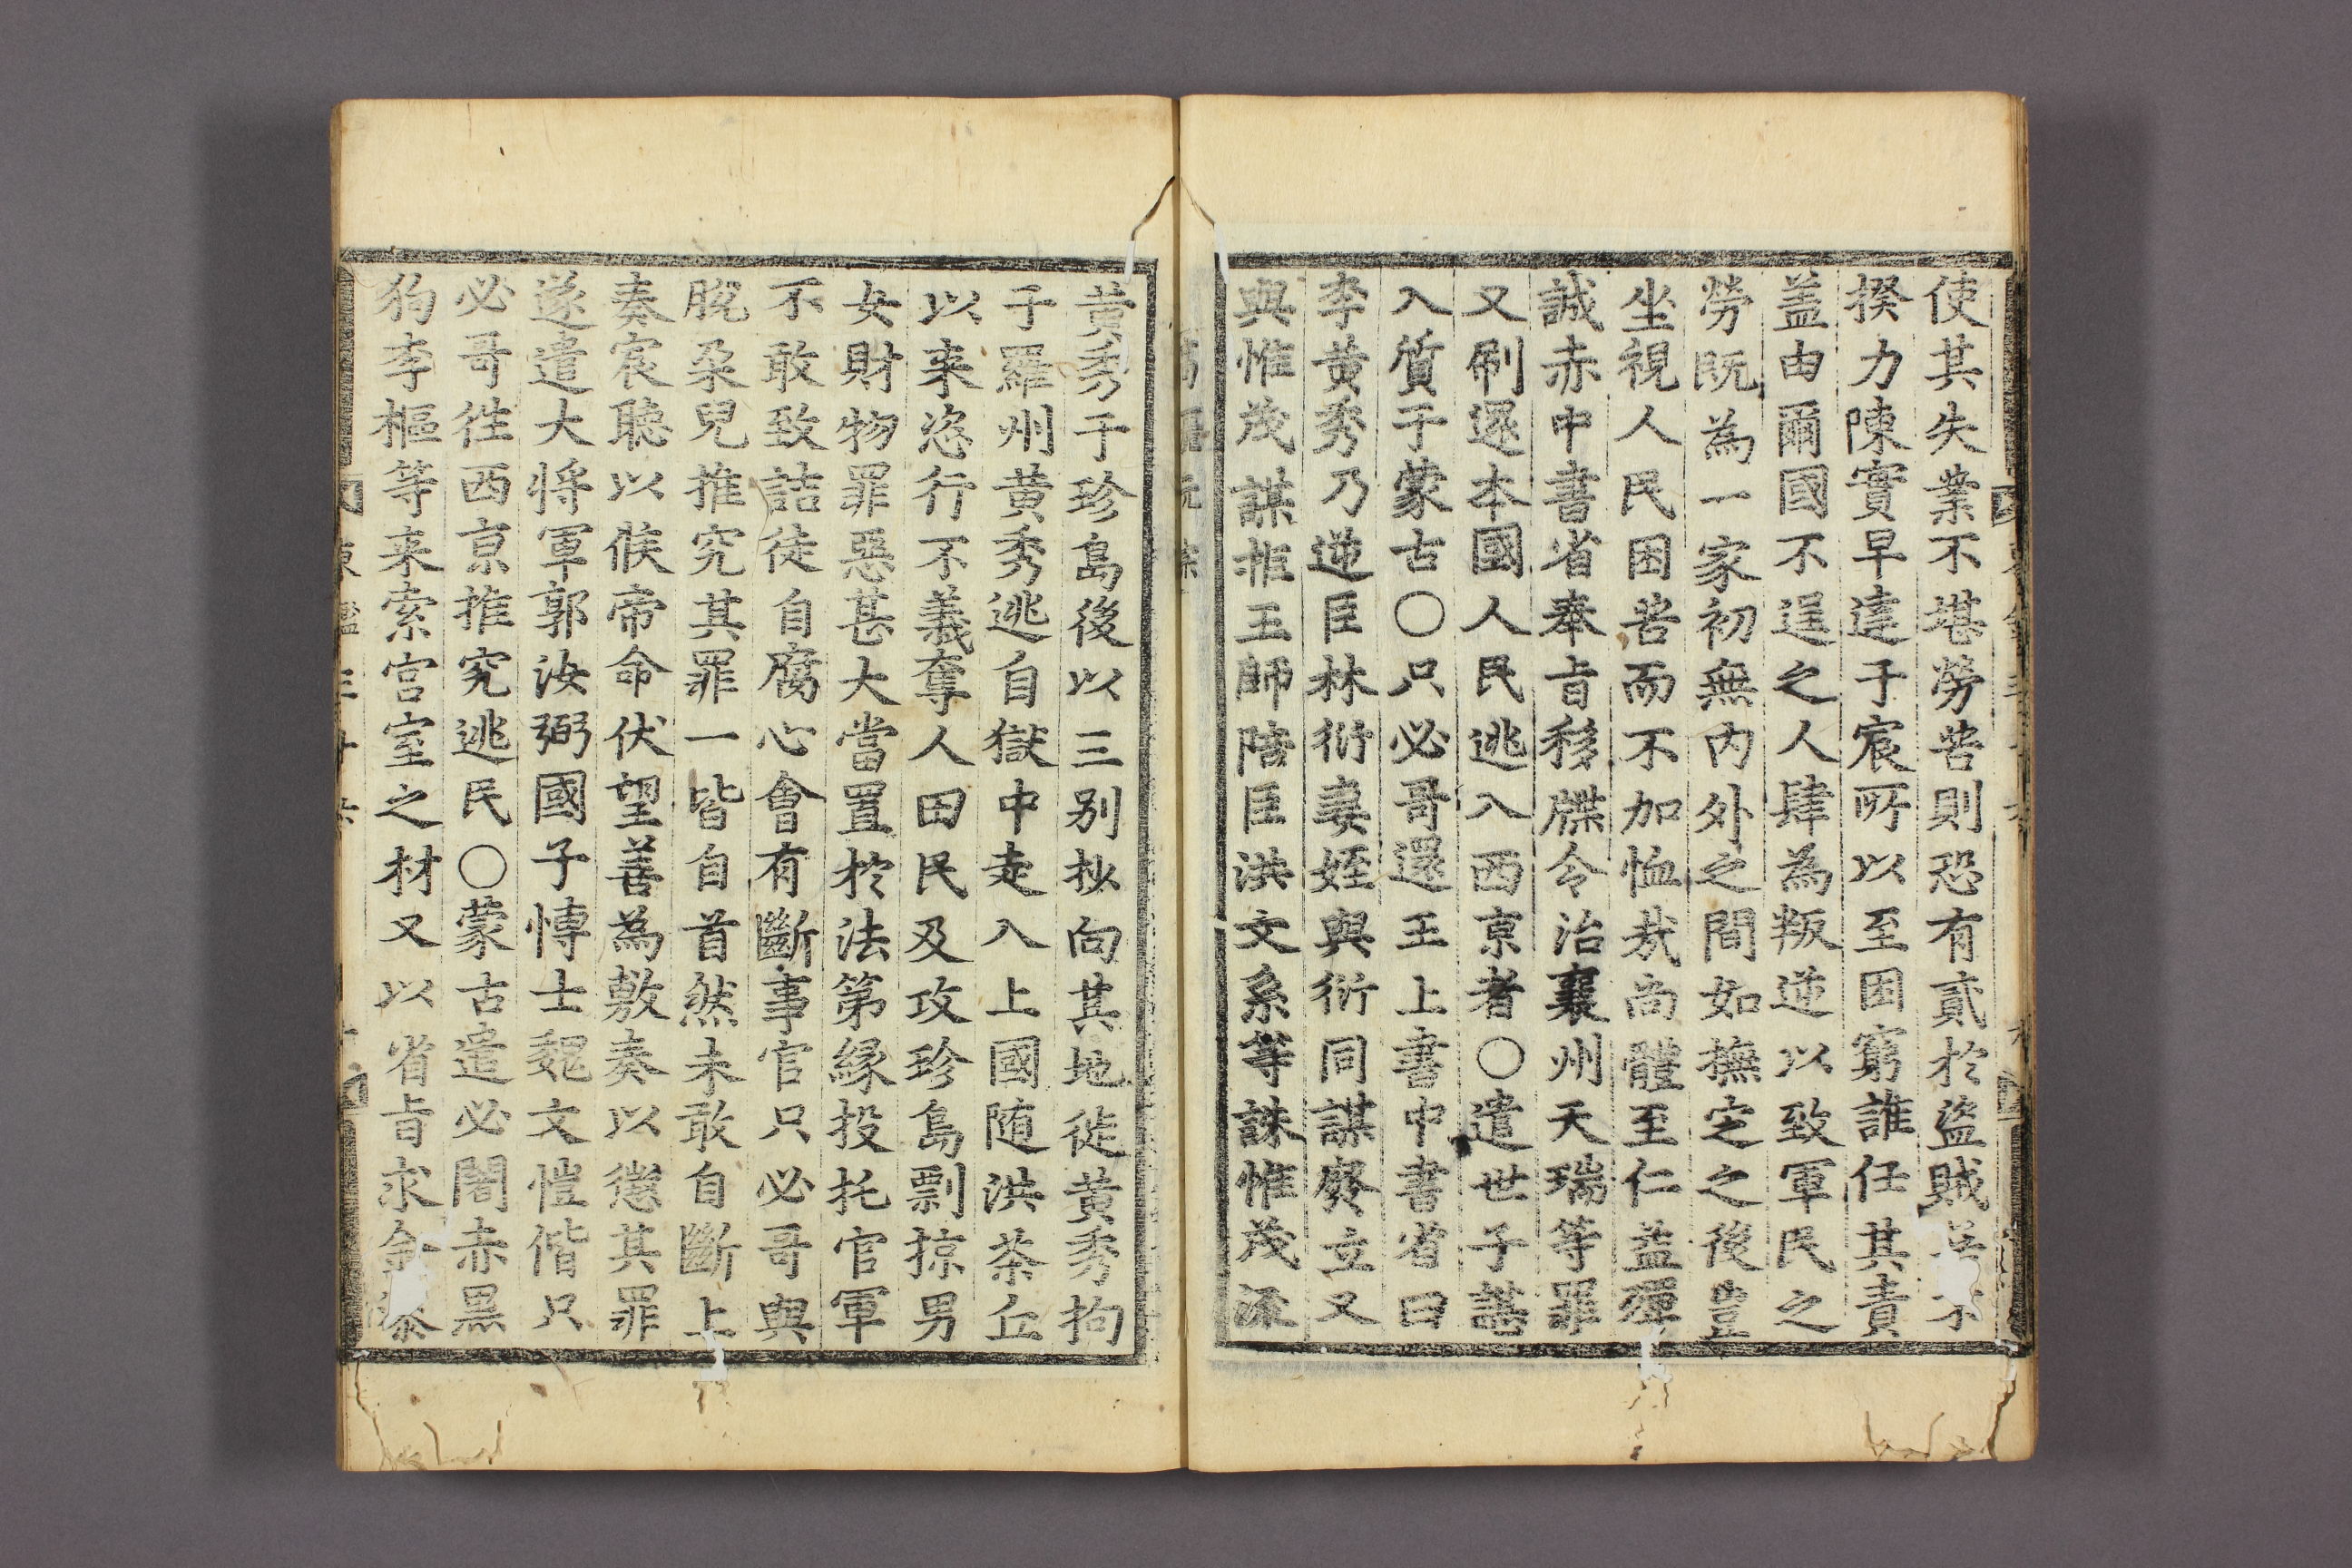 使其失業不堪勞苦則恐有貳於盜賊
揆力陳實早達于宸所以至困窮誰任其責
盖由爾國不逞之人肆為叛逆以致軍民之
勞既為一家初無內外之間如撫定之後豈
坐視人民困苦而不加恤㢤尚體至仁益殫
誠赤中書省奉旨移牒令治襄州天瑞等罪
又刷還本國人民逃入西京者○遣世子諶
入質于蒙古○只必哥還王上書中書省曰
李黃秀乃逆臣林衍妻姪與衍同謀廢立又
與惟茂謀拒王師陪臣洪文系等誅惟茂流
黃秀于珍島後以三别抄向其地徙黃秀拘
于羅州黃秀逃自獄中走入上國随洪茶丘
以来恣行不義奪人田民及攻珍島剽掠男
女財物罪惡甚大當置於法第縁投托官軍
不敢致詰徒自腐心會有斷事官只必哥與
脱朶兒推究其罪一皆自首然未敢自斷上
奏宸聽以候帝命伏望善為敷奏以懲其罪
遂遣大將軍郭汝弼國子博士魏文愷偕只
必哥徃西京推究逃民○蒙古遣必闍赤黑
狗李樞等来索宫室之材又以省旨求金漆